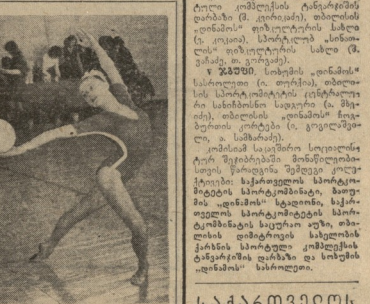 ტული კომპლექსის ტანვარჯიშის
დარბაზი (მ. კვირიკაძე), თბილისის
„დინამოს“ ფიზკულტურის სახლი
სპორტკლუბ „სინათ-
ლის“ ფიზკულტურის სახლი (მ.
ვაჩაძე, თ. გორგაძე).
V ჯგუფი, სოხუმის „დინამოს“
სასროლეთი (ი. თურქია), თბილი-
სის სპორტკომიტეტის ცენტრალუ-
რი სანიჩბოსნო სადგური (ა. მხე-
იძე), თბილისის „დინამოს“ ჩოგ-
ბურთის კორტები (ი. გოგილაშვი-
ლი, ა. სამხარაძე).
კომისიამ საკავშირო სოციალის-
ტურ შეჯიბრებაში მონაწილეობი-
სთვის წარადგინა შემდეგი კოლე-
ქტივები: საქართველოს სპორტკო-
მიტეტის სპორტკომბინატი, ბათუ-
მის „დინამოს“ სტადიონი, საქარ-
თველოს სპორტკომიტეტის სპორ-
ტკომბინატის საცურაო აუზი, თბი-
ლისის დიმიტროვის სახელობის
ქარხნის სპორტული კომპლექსის
ტანვარჯიშის დარბაზი და სოხუმის
„დინამოს“ სასროლეთი.
საქართველოს